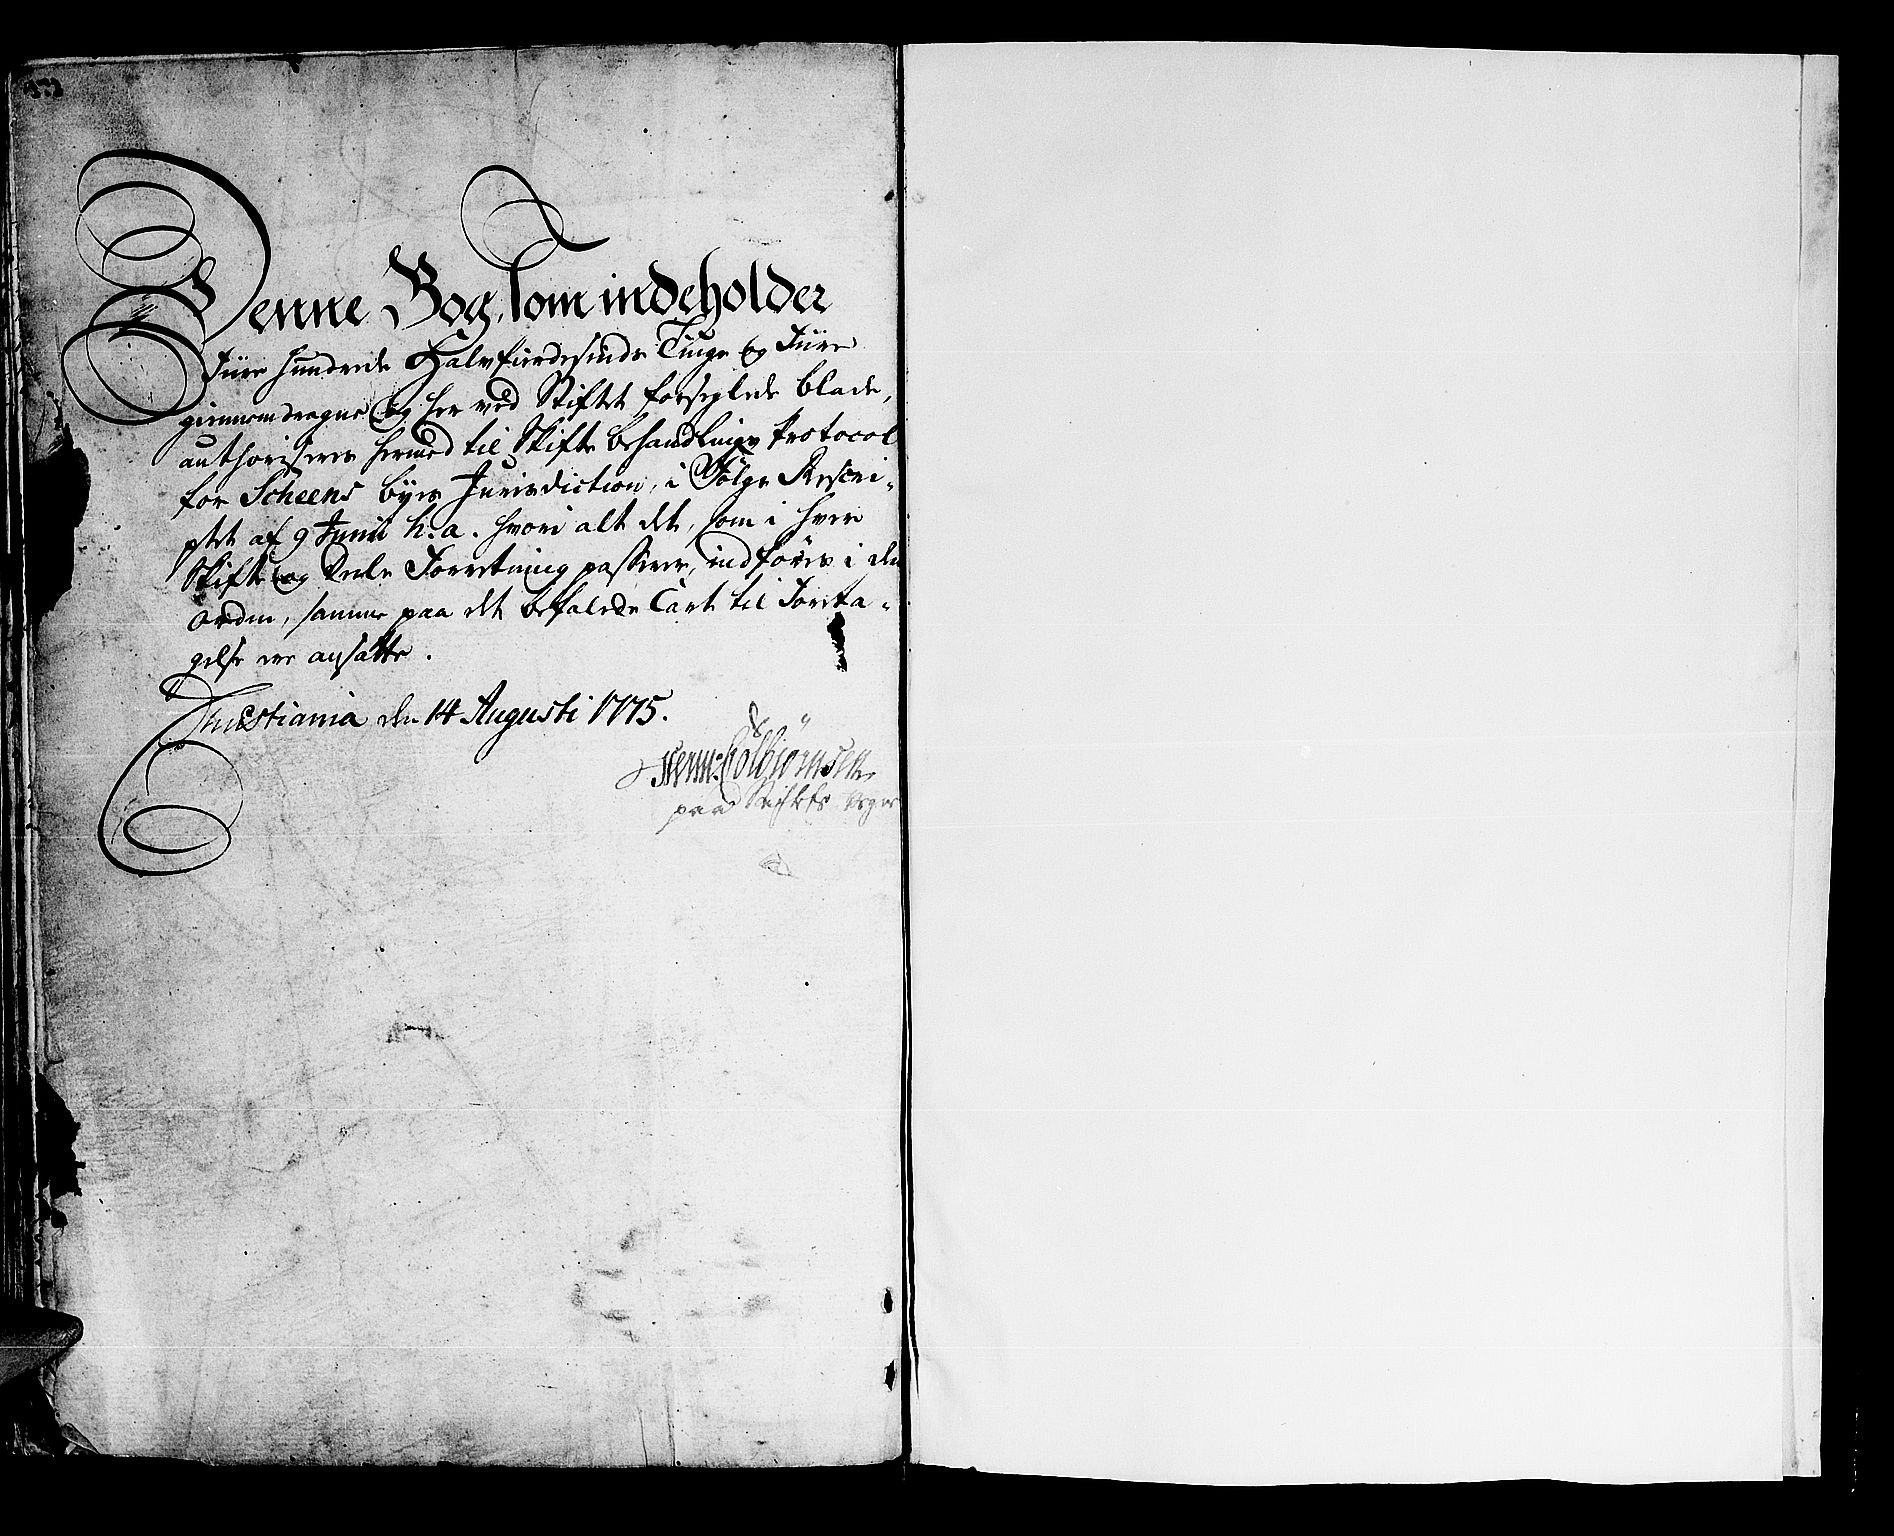 Denne Bog, som indeholder
Fiire hundrede Halvfierdesinds Tiuge og Fiire
giennemdragne og her ved Stiftet forseglede blade,
authoriseres hermed til Skifte behandlings Protocol
for Scheens byes Jurisdiction, i Følge Rescri-
ptet af 9 Junii h: a. hvori alt det, som i hver
Skifte og Deele Forretning passerer, indføres i den
orden, samme paa det befalede Cart til Foreta-
gelse ere ansatte.
Christiania den 14 Augusti 1775.
Colbiørnsen
paa Stiftets